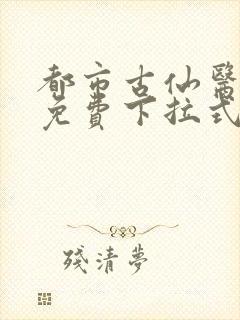 都市古仙醫
免費下拉式
殘清夢